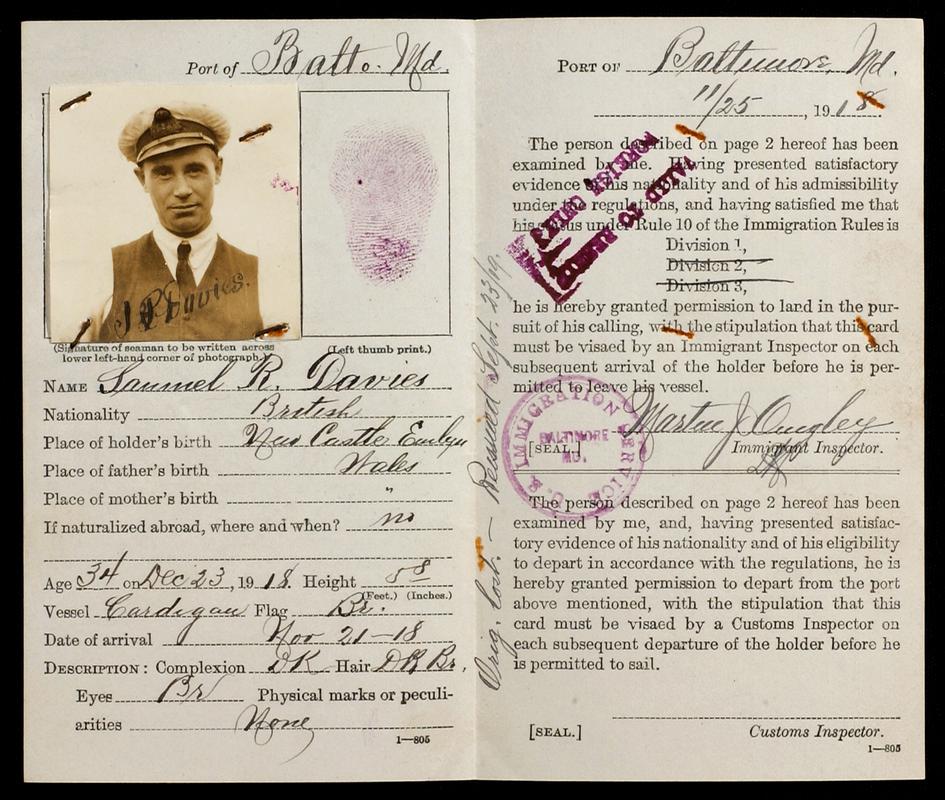 Port of Balto. Md.
Davies.
(Signature of seaman to be written across
lower left-hand corner of photograph.)
(Left thumb print.)
NAME Samuel R. Davies
Nationality British
Place of holder's birth New Castle Emlyn
Place of father's birth Wales
Place of mother's birth "
If naturalized abroad, where and when? no
Age 34 on Dec 23, 1918. Height 5 8
(Feet.) (Inches.)
Vessel Cardigan Flag Br.
Date of arrival Nov 21-18
DESCRIPTION: Complexion DK Hair DK Br.
Eyes Br Physical marks or peculi-
arities None
1—805
PORT OF Baltimore, Md.
11/25, 1918
The person described on page 2 hereof has been
examined by me. Having presented satisfactory
evidence of his nationality and of his admissibility
under the regulations, and having satisfied me that
his status under Rule 10 of the Immigration Rules is
Division 1,
Division 2,
Division 3,
he is hereby granted permission to land in the pur-
suit of his calling, with the stipulation that this card
must be visaed by an Immigrant Inspector on each
subsequent arrival of the holder before he is per-
mitted to leave his vessel.
Martin J.
[SEAL.] Immigrant Inspector.
U. S. IMMIGRATION SERVICE
BALTIMORE
MD.
FOREIGN
VALID TO
Orig. lost. — Reissued Sept. 23/19.
The person described on page 2 hereof has been
examined by me, and, having presented satisfac-
tory evidence of his nationality and of his eligibility
to depart in accordance with the regulations, he is
hereby granted permission to depart from the port
above mentioned, with the stipulation that this
card must be visaed by a Customs Inspector on
each subsequent departure of the holder before he
is permitted to sail.
[SEAL.] Customs Inspector.
1—805